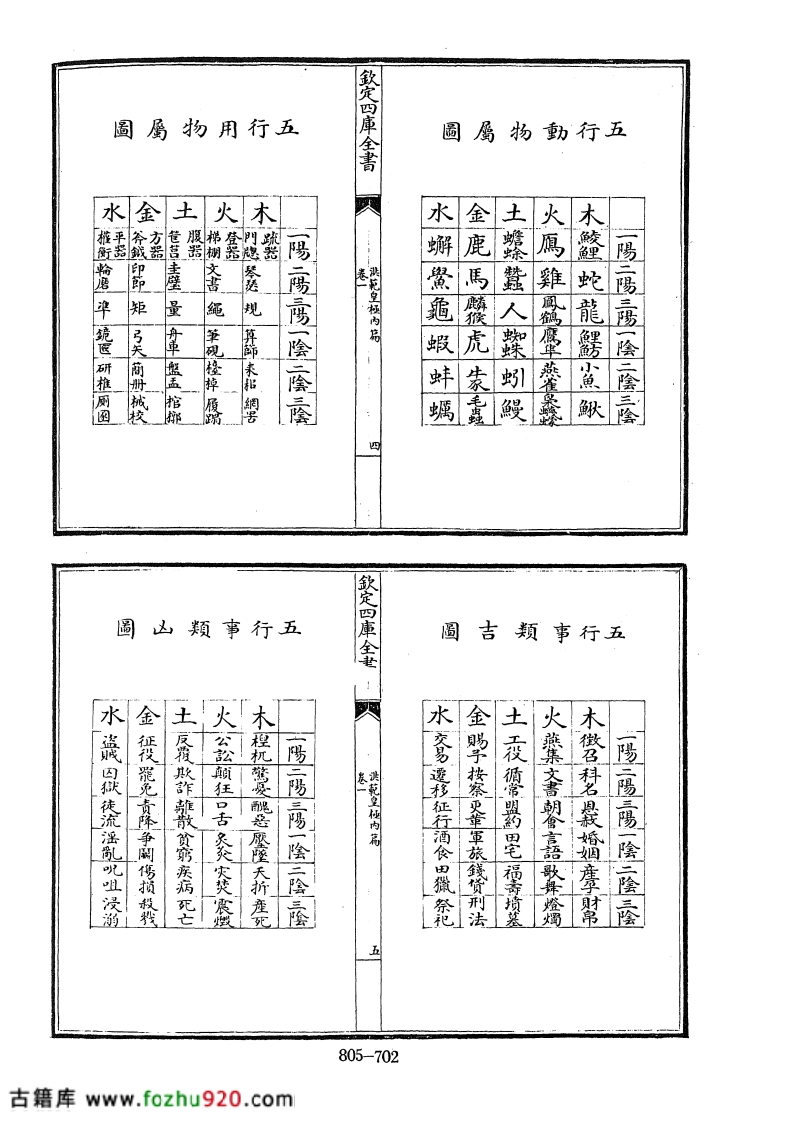 五行動物屬圖
木 火 土 金 水
一陽 鯪鯉 鴈 蟾蜍 鹿 蠏
二陽 蛇 雞 蠶 馬 鱟
三陽 龍 鳳鶴 人 麟猴 龜
一陰 鯉魴 鷹隼 蜘蛛 虎 蝦
二陰 小魚 燕雀 蚓 蚌
三陰 鰍 鰻 毛蟲 蠣
欽定四庫全書
洪範皇極内篇
卷一
四
五行用物屬圖
木 火 土 金 水
一陽 疏器門牕 登器梯棚 腹器筐筥 方器斧鉞 平器權衡
二陽 琴瑟 文書 圭璧 印節 輪磨
三陽 規 繩 量 矩 準
一陰 算節 筆硯 舟車 弓矢 鏡匣
二陰 耒耜 檯棹 盤盂 簡冊 研椎
三陰 網罟 履蹋 棺槨 械校 厠圂
五行事類吉圖
木 火 土 金 水
一陽 徵召 燕集 工役 賜予 交易
二陽 科名 文書 循常 按察 遷移
三陽 恩赦 朝會 盟約 更革 征行
一陰 婚姻 言語 田宅 軍旅 酒食
二陰 產孕 歌舞 福壽 錢貨 田獵
三陰 財帛 燈燭 墳墓 刑法 祭祀
欽定四庫全書
洪範皇極内篇
卷一
五
五行事類凶圖
木 火 土 金 水
一陽 桯杌 公訟 反覆 征役 盜賊
二陽 驚憂 顛狂 欺詐 罷免 囚獄
三陽 醜惡 口舌 離散 責降 徒流
一陰 壓墜 炙灸 貧窮 争鬭 淫亂
二陰 夭折 災焚 疾病 傷損 呪咀
三陰 產死 震燬 死亡 殺戮 浸溺
805-702
古籍库 www.fozhu920.com